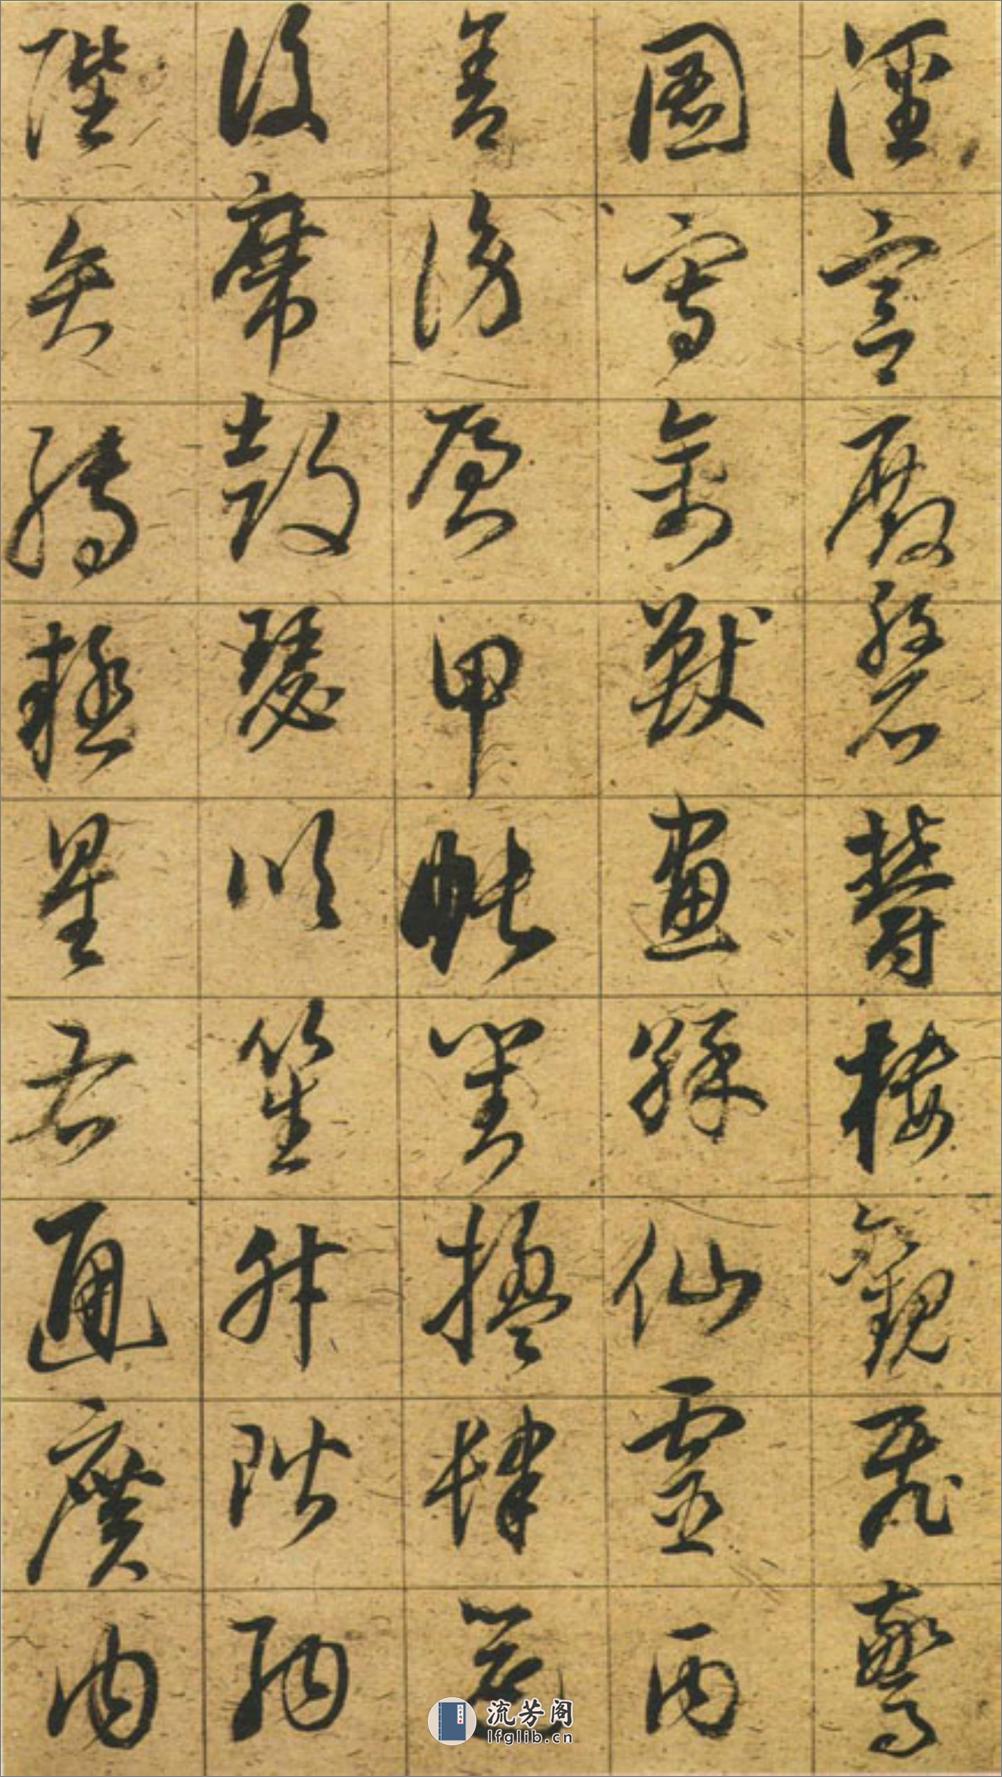 涇宮殿磐欝樓觀飛驚
圖寫禽獸畫綵仙靈丙
舍傍啓甲帳對楹肆筵
設席鼓瑟吹笙升階納
陛弁轉疑星右通廣内
流芳阁
lfglib.cn